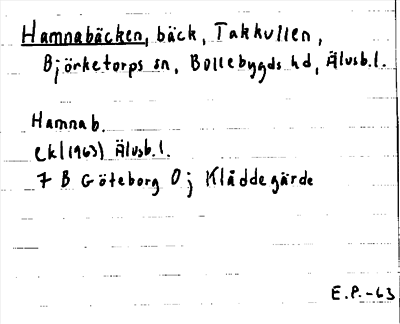 Hamnabäcken, bäck, Takkullen,
Björketorps sn, Bollebygds hd, Älvsb.l.
Hamnab.
Ekl(1963) Älvsb.l.
7 B Göteborg Oj Klåddegärde
E.P.-63